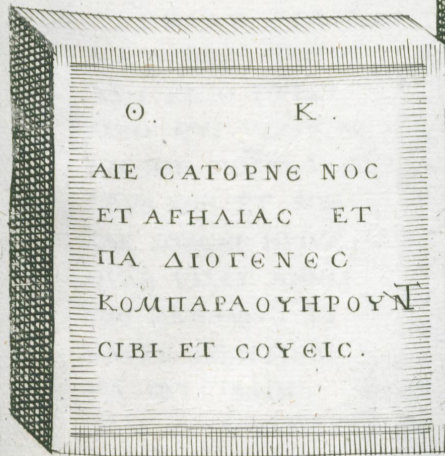 Θ. Κ.
ΑΙΕ CΑΤΟΡΝΕ ΝΟC
ΕΤ ΑFΗΛΙΑC ΕΤ
ΠΑ ΔΙΟΓΕΝΕC
ΚΟΜΠΑΡΑΟΥΗΡΟΥΝΤ
CΙΒΙ ΕΤ CΟΥΕΙC.